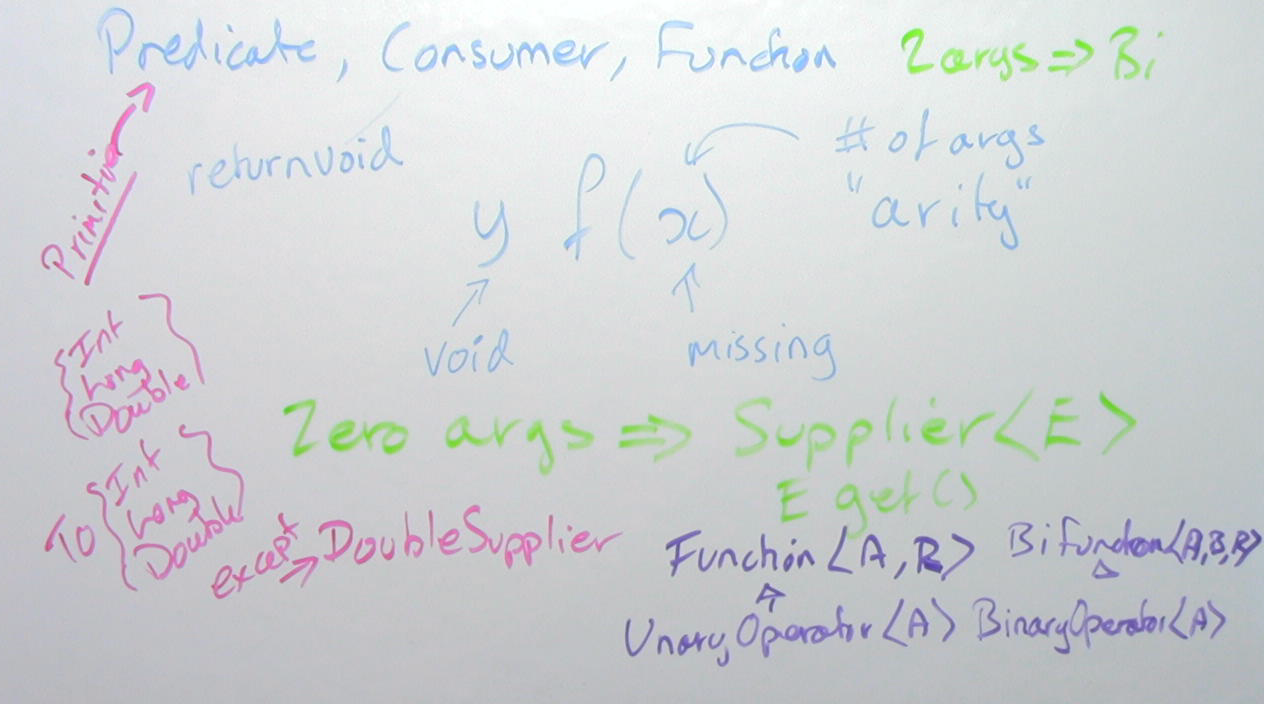 Predicate, Consumer, Function 2 args => Bi
Primitive
return void
# of args
"arity"
y f(x)
void
missing
{ Int
Long
Double }
To { Int
Long
Double }
Zero args => Supplier<E>
E get()
except => DoubleSupplier
Function<A,R> BiFunction<A,B,R>
UnaryOperator<A> BinaryOperator<A>